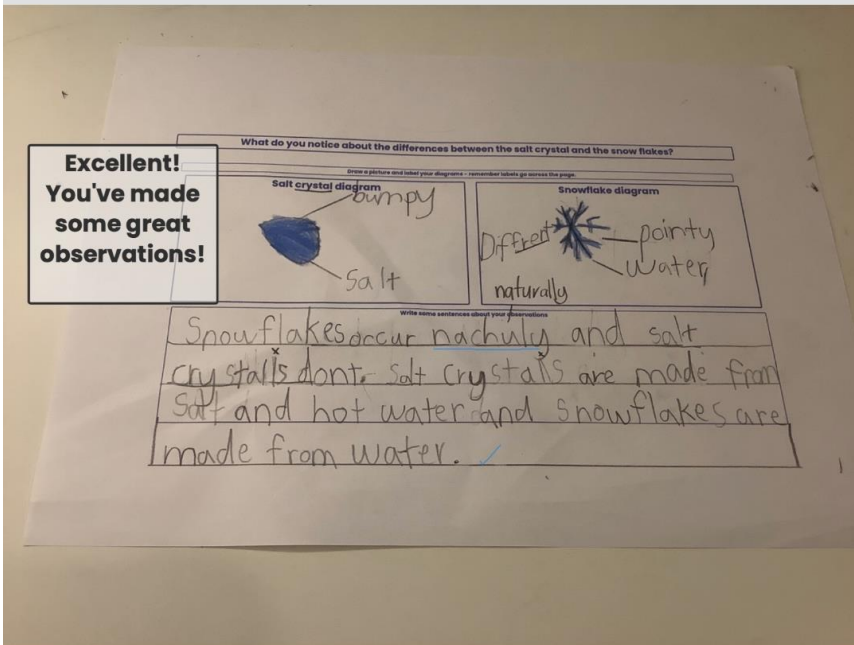 What do you notice about the differences between the salt crystal and the snow flakes?
Draw a picture and label your diagrams - remember labels go across the page.
Excellent!
You've made
some great
observations!
Salt crystal diagram
bumpy
Salt
Snowflake diagram
Diffrent
pointy
water
naturally
Write some sentences about your observations
Snowflakes occur nachuly and salt
crystalls dont. Salt crystalls are made from
Salt and hot water and snowflakes are
made from water.